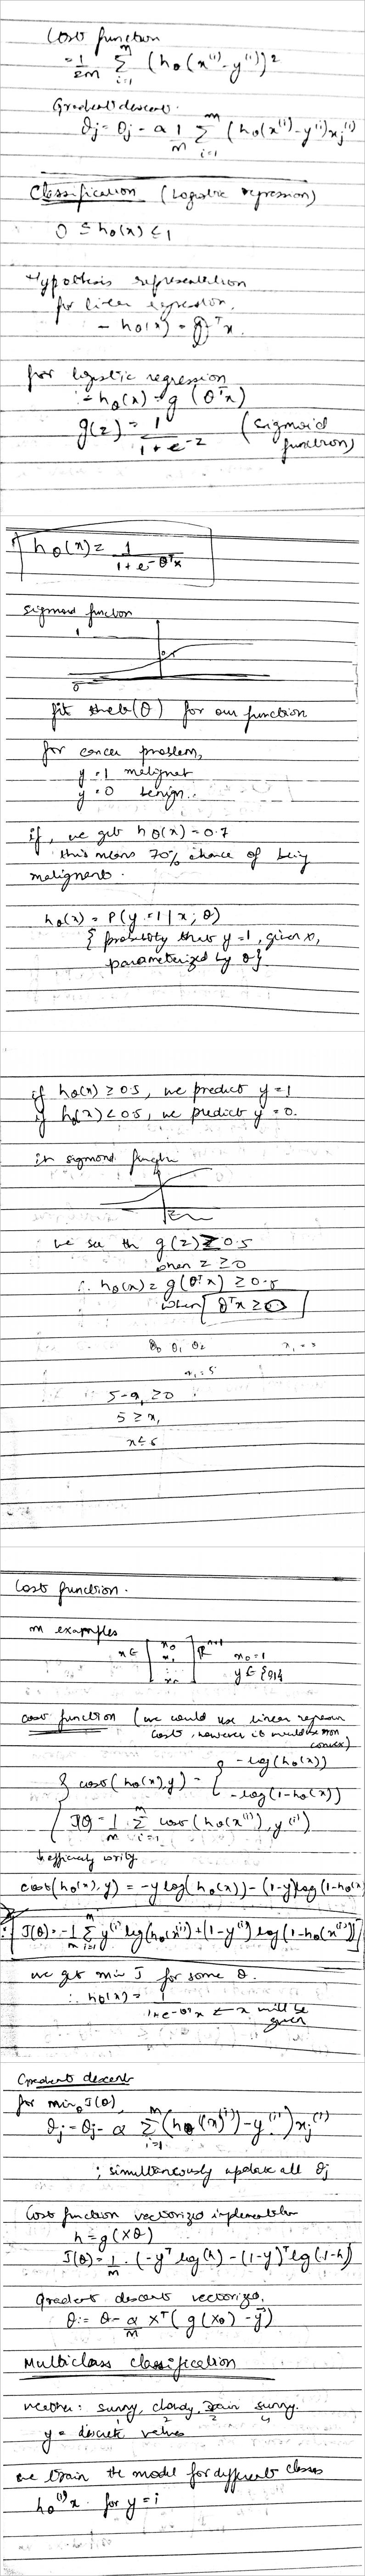 Cost function
= 1/2m Σ_{i=1}^{m} (hθ(x⁽ⁱ⁾ - y⁽ⁱ⁾))²
Gradient descent.
θj = θj - α 1/m Σ_{i=1}^{m} (hθ(x⁽ⁱ⁾ - y⁽ⁱ⁾)xj⁽ⁱ⁾
Classification (Logistic regression)
0 ≤ hθ(x) ≤ 1
Hypothesis representation
for linear regression,
- hθ(x) = θᵀx.
for logistic regression
- hθ(x) = g (θᵀx)
g(z) = 1/1+e^-z (sigmoid function)
hθ(x) = 1/1+e^-θᵀx
sigmoid function
1
0
fit (θ) for our function
for cancer problem,
y = 1 malignet
y = 0 benign.
if, we get hθ(x) = 0.7
this means 70% chance of being
malignant.
hθ(x) = P(y=1|x; θ)
{ probability that y=1, given x,
parameterized by θ}
if hθ(x) ≥ 0.5, we predict y=1
if hθ(x) < 0.5, we predict y=0.
in sigmoid
we see th g(z) ≥ 0.5
when z ≥ 0
∴ hθ(x) = g(θᵀx) ≥ 0.5
when θᵀx ≥ 0
θ0 θ1 θ2
x1 = 5
5 - x1 ≥ 0
5 ≥ x1
Cost function.
m examples
x ∈ [x0 x1 : xn] ℝⁿ⁺¹ x0 = 1
y ∈ {0,1}
cost function (we would use linear regression
cost, however it would be non
convex)
{ cost(hθ(x), y) = { -log(hθ(x))
-log(1-hθ(x))
J(θ) = 1/m Σ_{i=1}^{m} cost(hθ(x⁽ⁱ⁾), y⁽ⁱ⁾)
cost(hθ(x), y) = -y log(hθ(x)) - (1-y)log(1-hθ(x)
J(θ) = -1/m Σ_{i=1}^{m} y⁽ⁱ⁾ log(hθ(x⁽ⁱ⁾)) + (1-y⁽ⁱ⁾) log(1-hθ(x⁽ⁱ⁾))]
we get min J for some θ.
∴ hθ(x) = 1/1+e^-θᵀx ← x will be
given
Gradient descent
for minθ J(θ),
θj = θj - α Σ_{i=1}^{m} (hθ((x)⁽ⁱ⁾) - y⁽ⁱ⁾) xj⁽ⁱ⁾
; simultaneously update all θj
Cost function vectorized implementation
h = g(Xθ)
J(θ) = 1/m . (-yᵀ log(h) - (1-y)ᵀ log(1-h)
Gradient descent vectorized.
θ := θ - α/m Xᵀ( g(Xθ) - y⃗)
Multiclass classification
weather: sunny, cloudy, rain sunny.
1 2 3 4
y = discrete values
we train the model for different classes
hθ⁽ⁱ⁾x for y = i